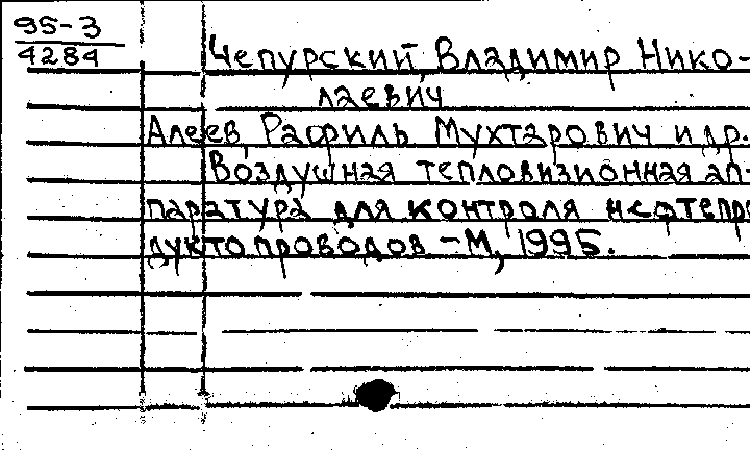 95-3
4284
Чепурский, Владимир Нико-
лаевич
Алеев, Рафиль Мухтарович и др.
Воздушная тепловизионная ап-
паратура для контроля нефтепро
дуктопроводов - М, 1995.